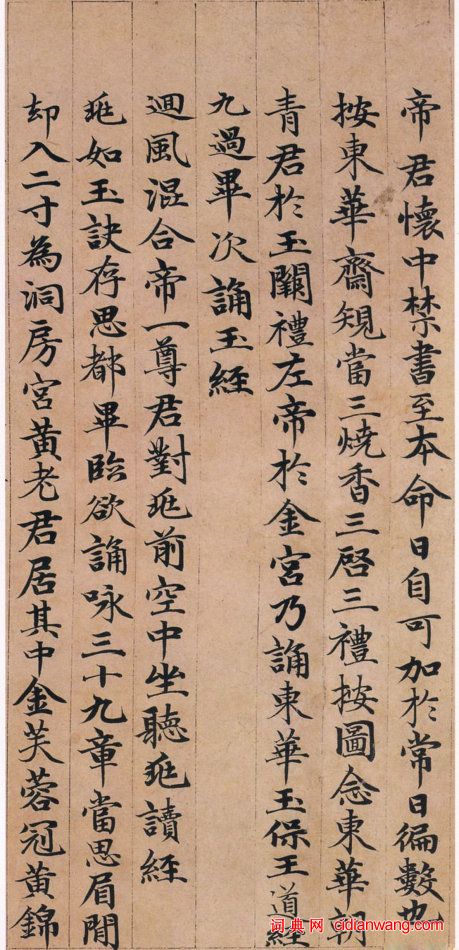 帝君懷中禁書至本命日自可加於常日徧數也
按東華齋規當三燒香三啓三禮按圖念東華朝
青君於玉闕禮左帝於金宮乃誦東華玉保王道經
九過畢次誦玉經
迴風混合帝一尊君對𠂢前空中坐聽𠂢讀經
𠂢如玉訣存思都畢臨欲誦咏三十九章當思眉間
却入二寸為洞房宮黃老君居其中金芙蓉冠黃錦
词典网 cidianwang.com